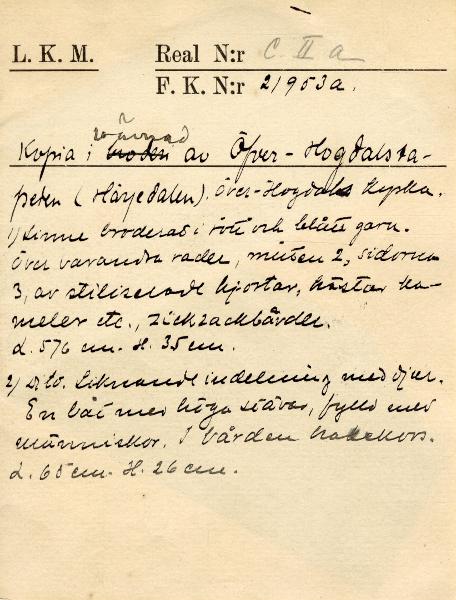 L. K. M. Real N:r C II a
F. K. N:r 21953a.
vävnad
Kopia i broderi av Över-Hogdalsta-
peten (Härjedalen). Över-Hogdals kyrka.
1) Linne broderat i rött och blått garn.
Över varandra rader, mitten 2, sidorna
3, av stiliserade hjortar, hästar ka-
meler etc., zickzackbårder.
L. 576 cm. H. 35 cm.
2) D:o. Liknande indelning med djur.
En båt med höga stävar, fylld med
människor. I bården hakkors.
L. 65 cm. H. 26 cm.